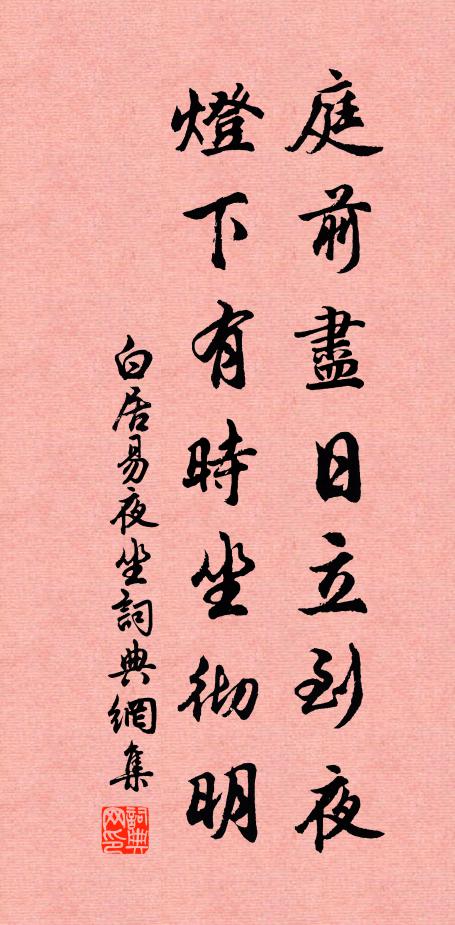 庭前盡日立到夜
燈下有時坐彻明
白居易夜坐詞典網集
詞典网印